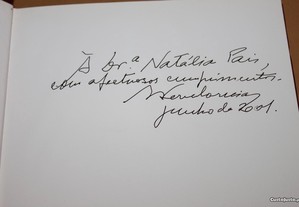 À Sr.ª Natália Pais,
com afectuosos cumprimentos.
junho de 2001.